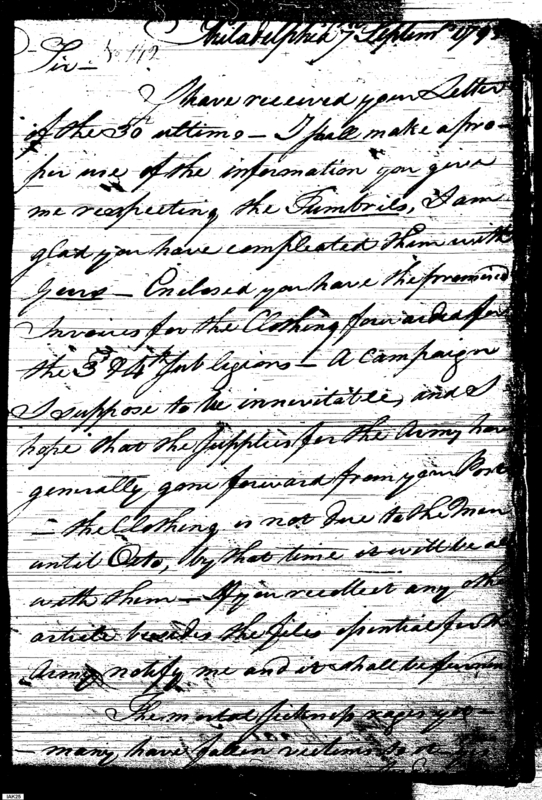 Philadelphia 7th Septemr 1793
Sir — No 142
I have received your Letter
of the 30 ultimo — I shall make a pro-
per use of the information you gave
me respecting the Tumbrils, I am
glad you have compleated them with
Gears — Enclosed you have the promised
Invoices for the Clothing forwarded for
the 3d & 4th Sub legions — A Campaign
I suppose to be innevitable, and I
hope that the supplies for the Army have
generally gone forward from your Post
— the Clothing is not due to the Men
until Octo, by that time it will be all
with them — If you recollect any other
article besides the files essential for the
Army notify me and it shall be forward
The mortal sickness rages yet —
— many have fallen victims to it